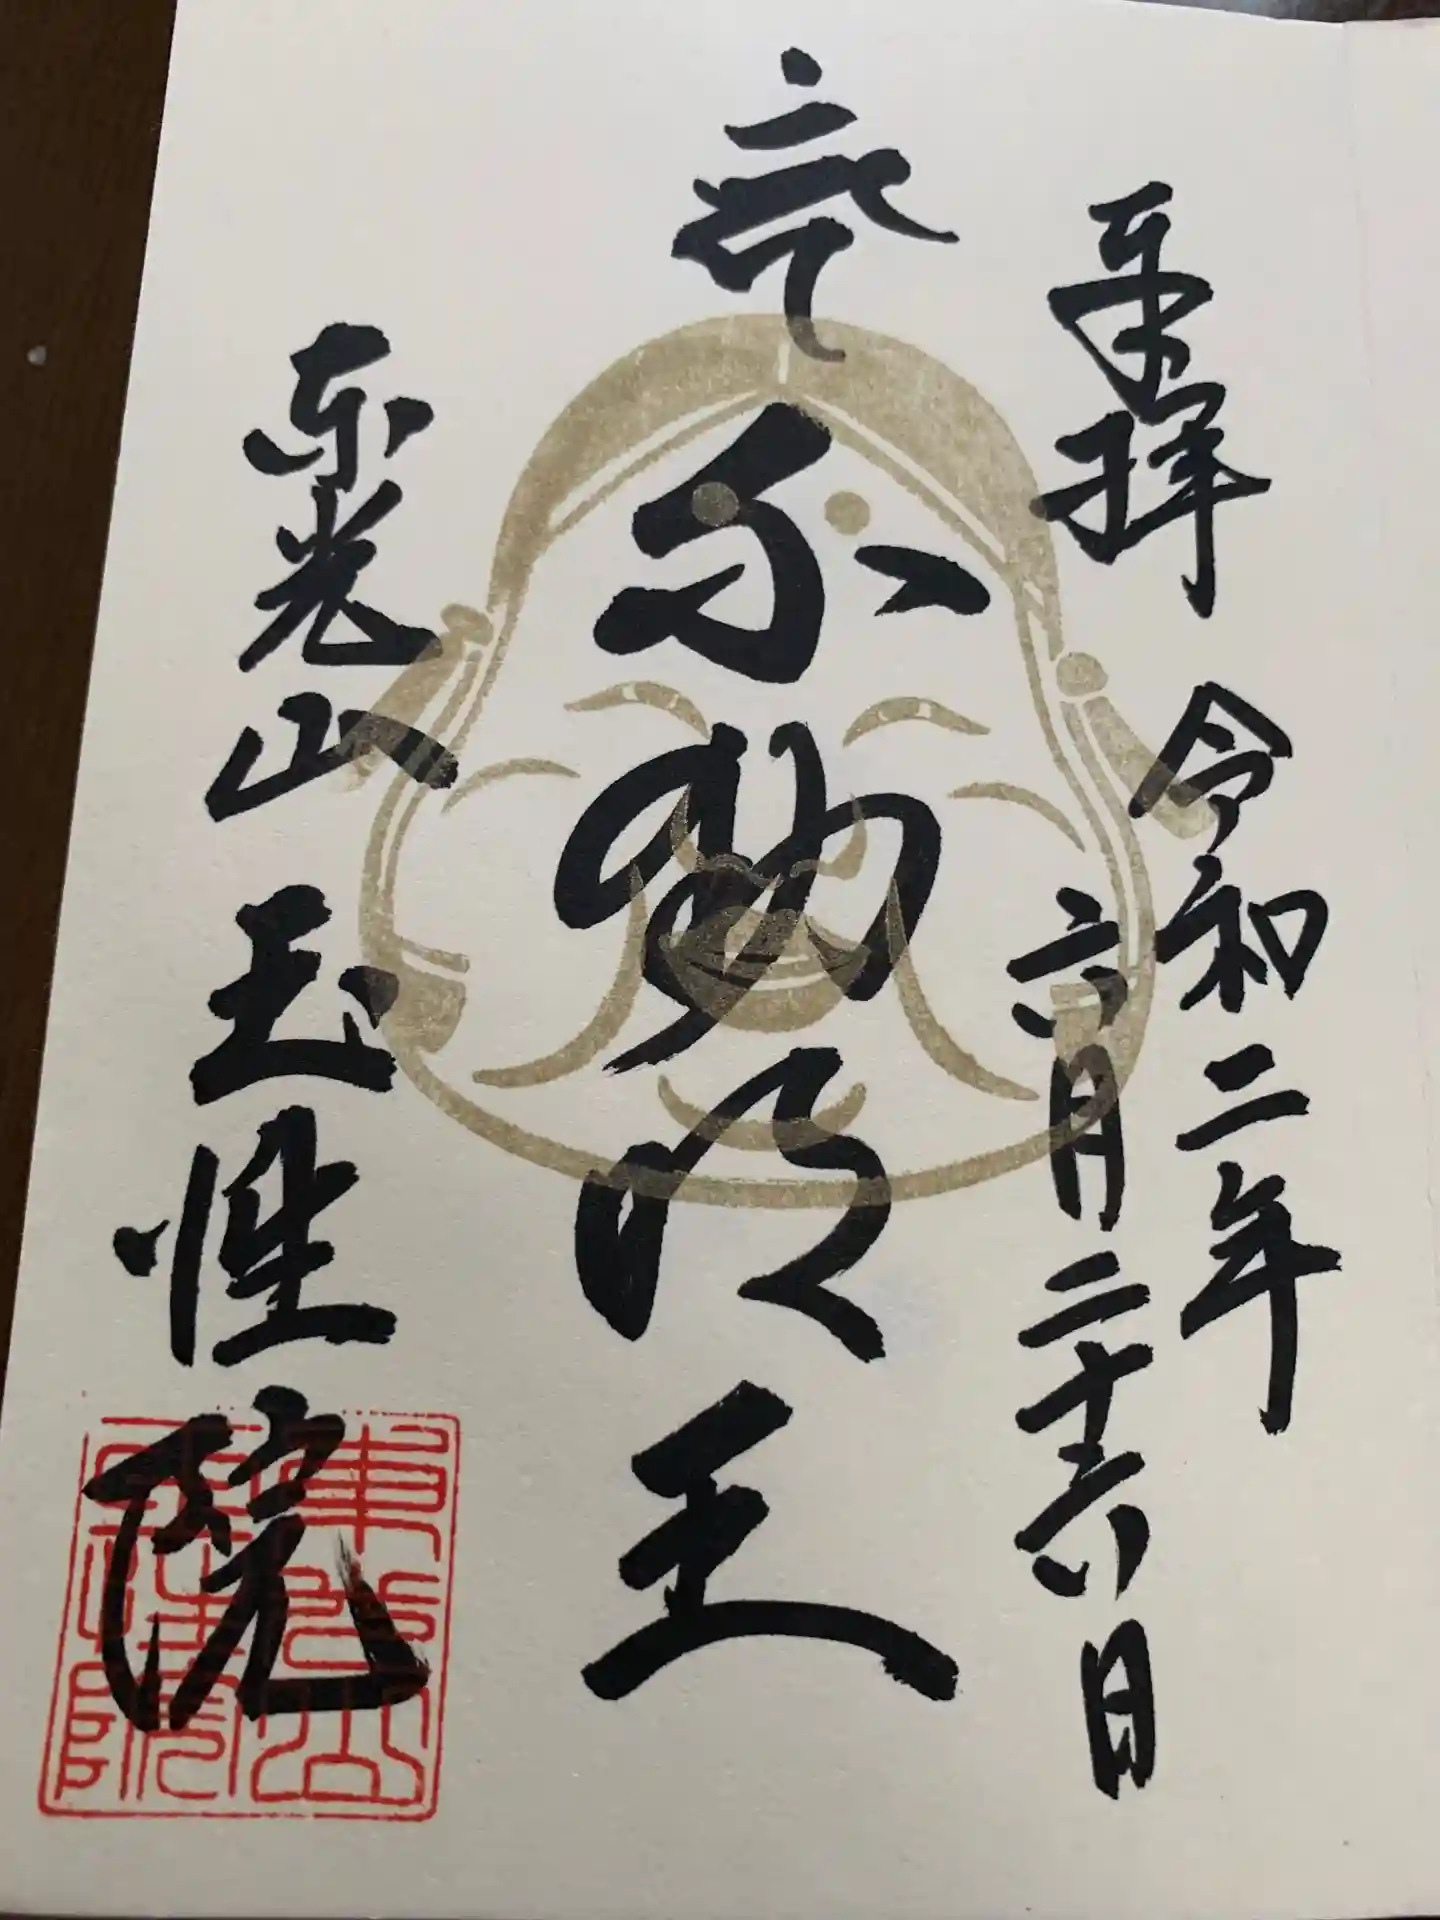 奉拝
令和二年
六月二十六日
不動明王
東光山 玉性院
東光山
玉性院